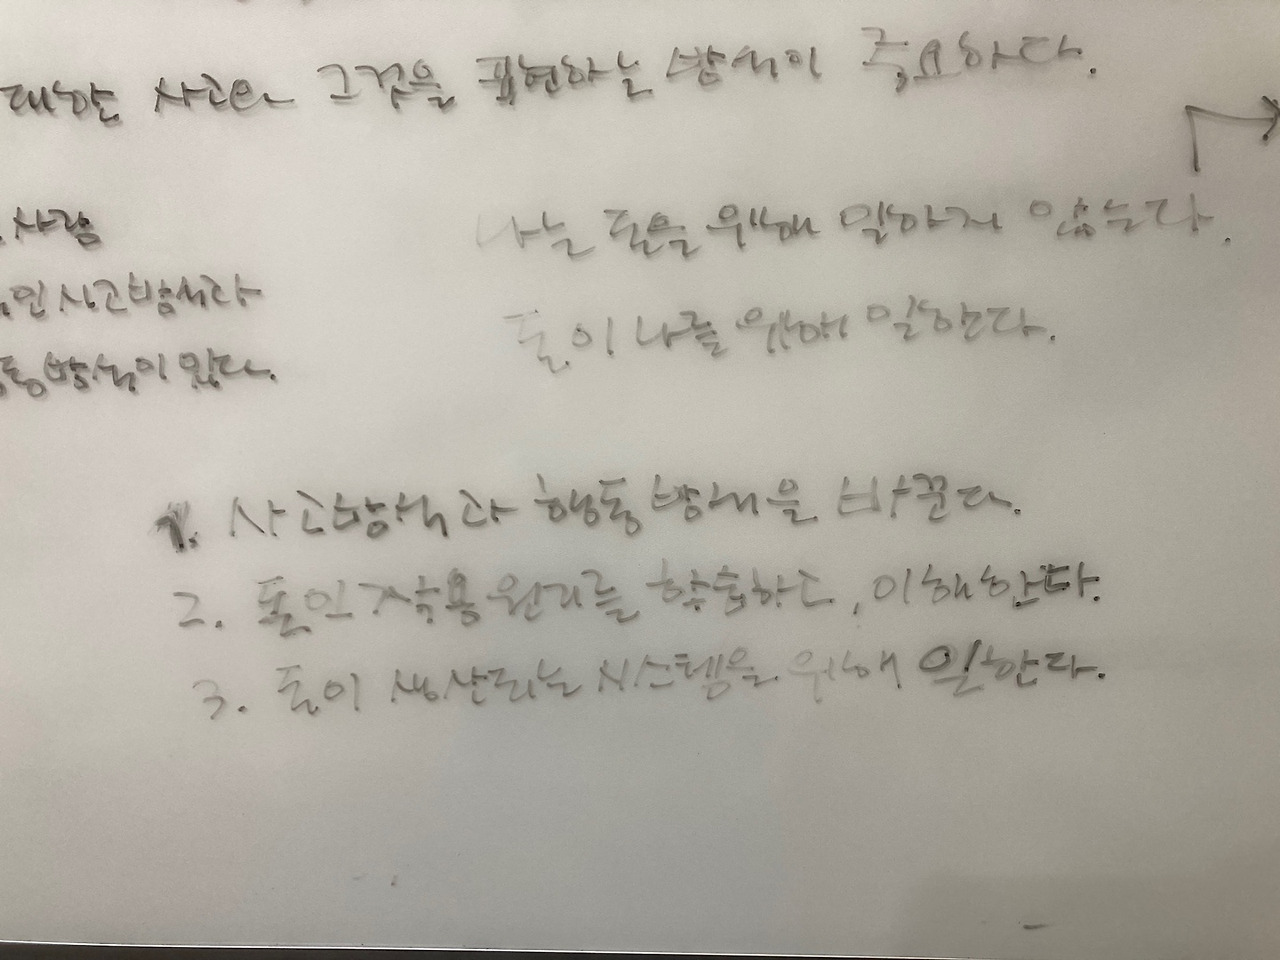 대한 사고와 그것을 표현하는 방식이 중요하다.
사람
인 사고방식과
동방식이 있다.
나는 돈을 위해 일하지 않는다.
돈이 나를 위해 일한다.
1. 사고방식과 행동방식을 바꾼다.
2. 돈의 작용원리를 학습하고, 이해한다.
3. 돈이 생산되는 시스템을 위해 일한다.